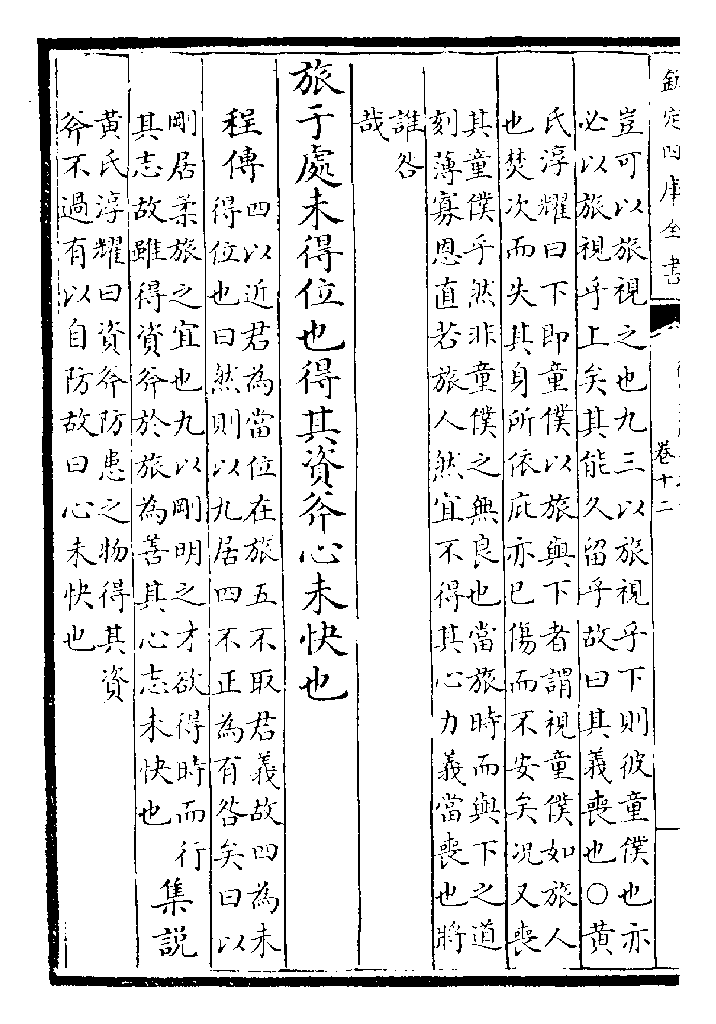 欽定四庫全書
卷十二
豈可以旅視之也九三以旅視乎下則彼童僕也亦
必以旅視乎上矣其能久留乎故曰其義喪也○黃
氏淳耀曰下即童僕以旅與下者謂視童僕如旅人
也焚次而失其身所依庇亦已傷而不安矣况又喪
其童僕乎然非童僕之無良也當旅時而與下之道
刻薄寡恩直若旅人然宜不得其心力義當喪也將
誰咎
哉
旅于處未得位也得其資斧心未快也
程傳
四以近君為當位在旅五不取君義故四為未
得位也曰然則以九居四不正為有咎矣曰以
剛居柔旅之宜也九以剛明之才欲得時而行
其志故雖得資斧於旅為善其心志未快也
集説
黃氏淳耀曰資斧防患之物得其資
斧不過有以自防故曰心未快也